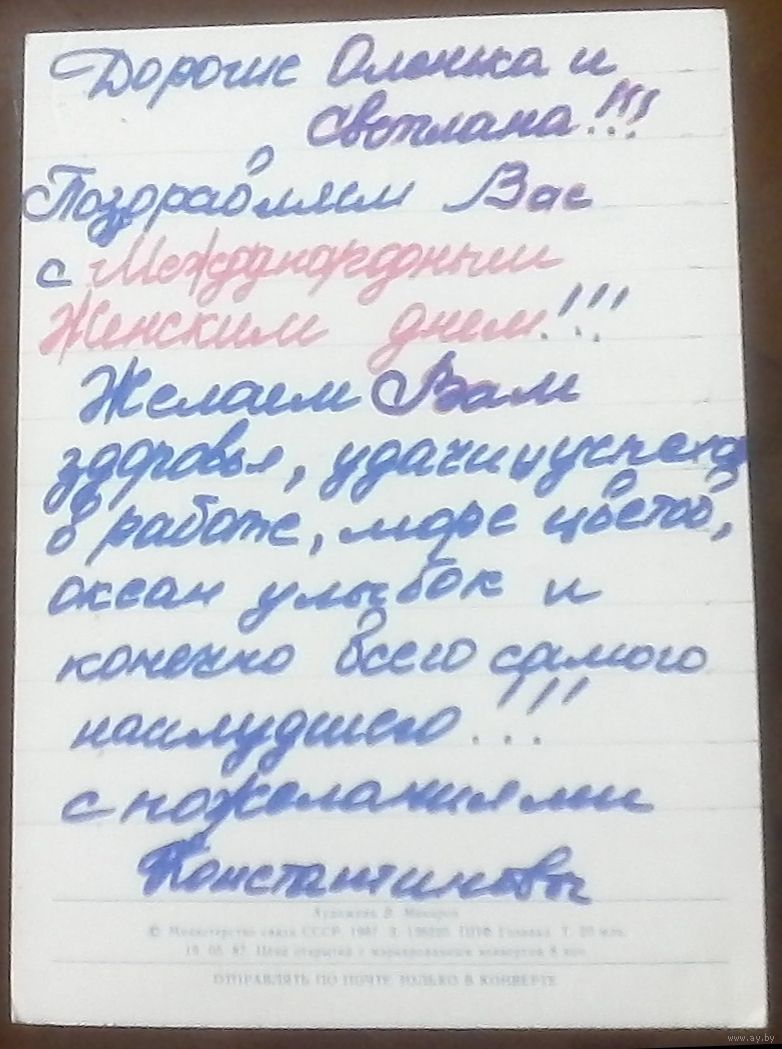 Дорогие Оленька и
Светлана!!!
Поздоравляем Вас
с Международным
Женским днем!!!
Желаем Вам
здоровья, удачи и успеха
в работе, море цветов,
океан улыбок и
конечно всего самого
наилудшего...!!!
с пожеланиями
Константиновы
Художник В. Макаров
© Министерство связи СССР. 1987. З. ППФ Гознака. Т. 20 млн.
19. 06. 87. Цена открытки с маркированным конвертом 8 коп.
ОТПРАВЛЯТЬ ПО ПОЧТЕ ТОЛЬКО В КОНВЕРТЕ
www.ay.by